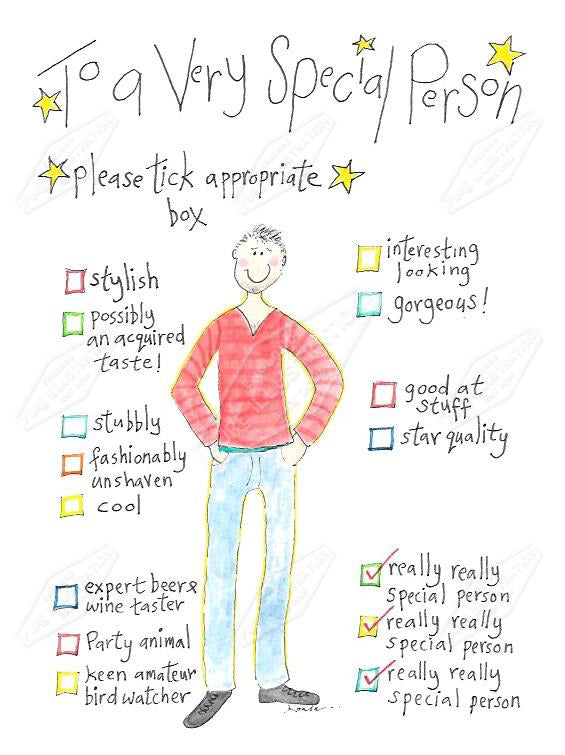 To a Very Special Person
please tick appropriate
box
stylish
possibly
an acquired
taste!
stubbly
fashionably
unshaven
cool
expert beer &
wine taster
Party animal
keen amateur
bird watcher
interesting
looking
gorgeous!
good at
stuff
star quality
really really
special person
really really
special person
really really
special person